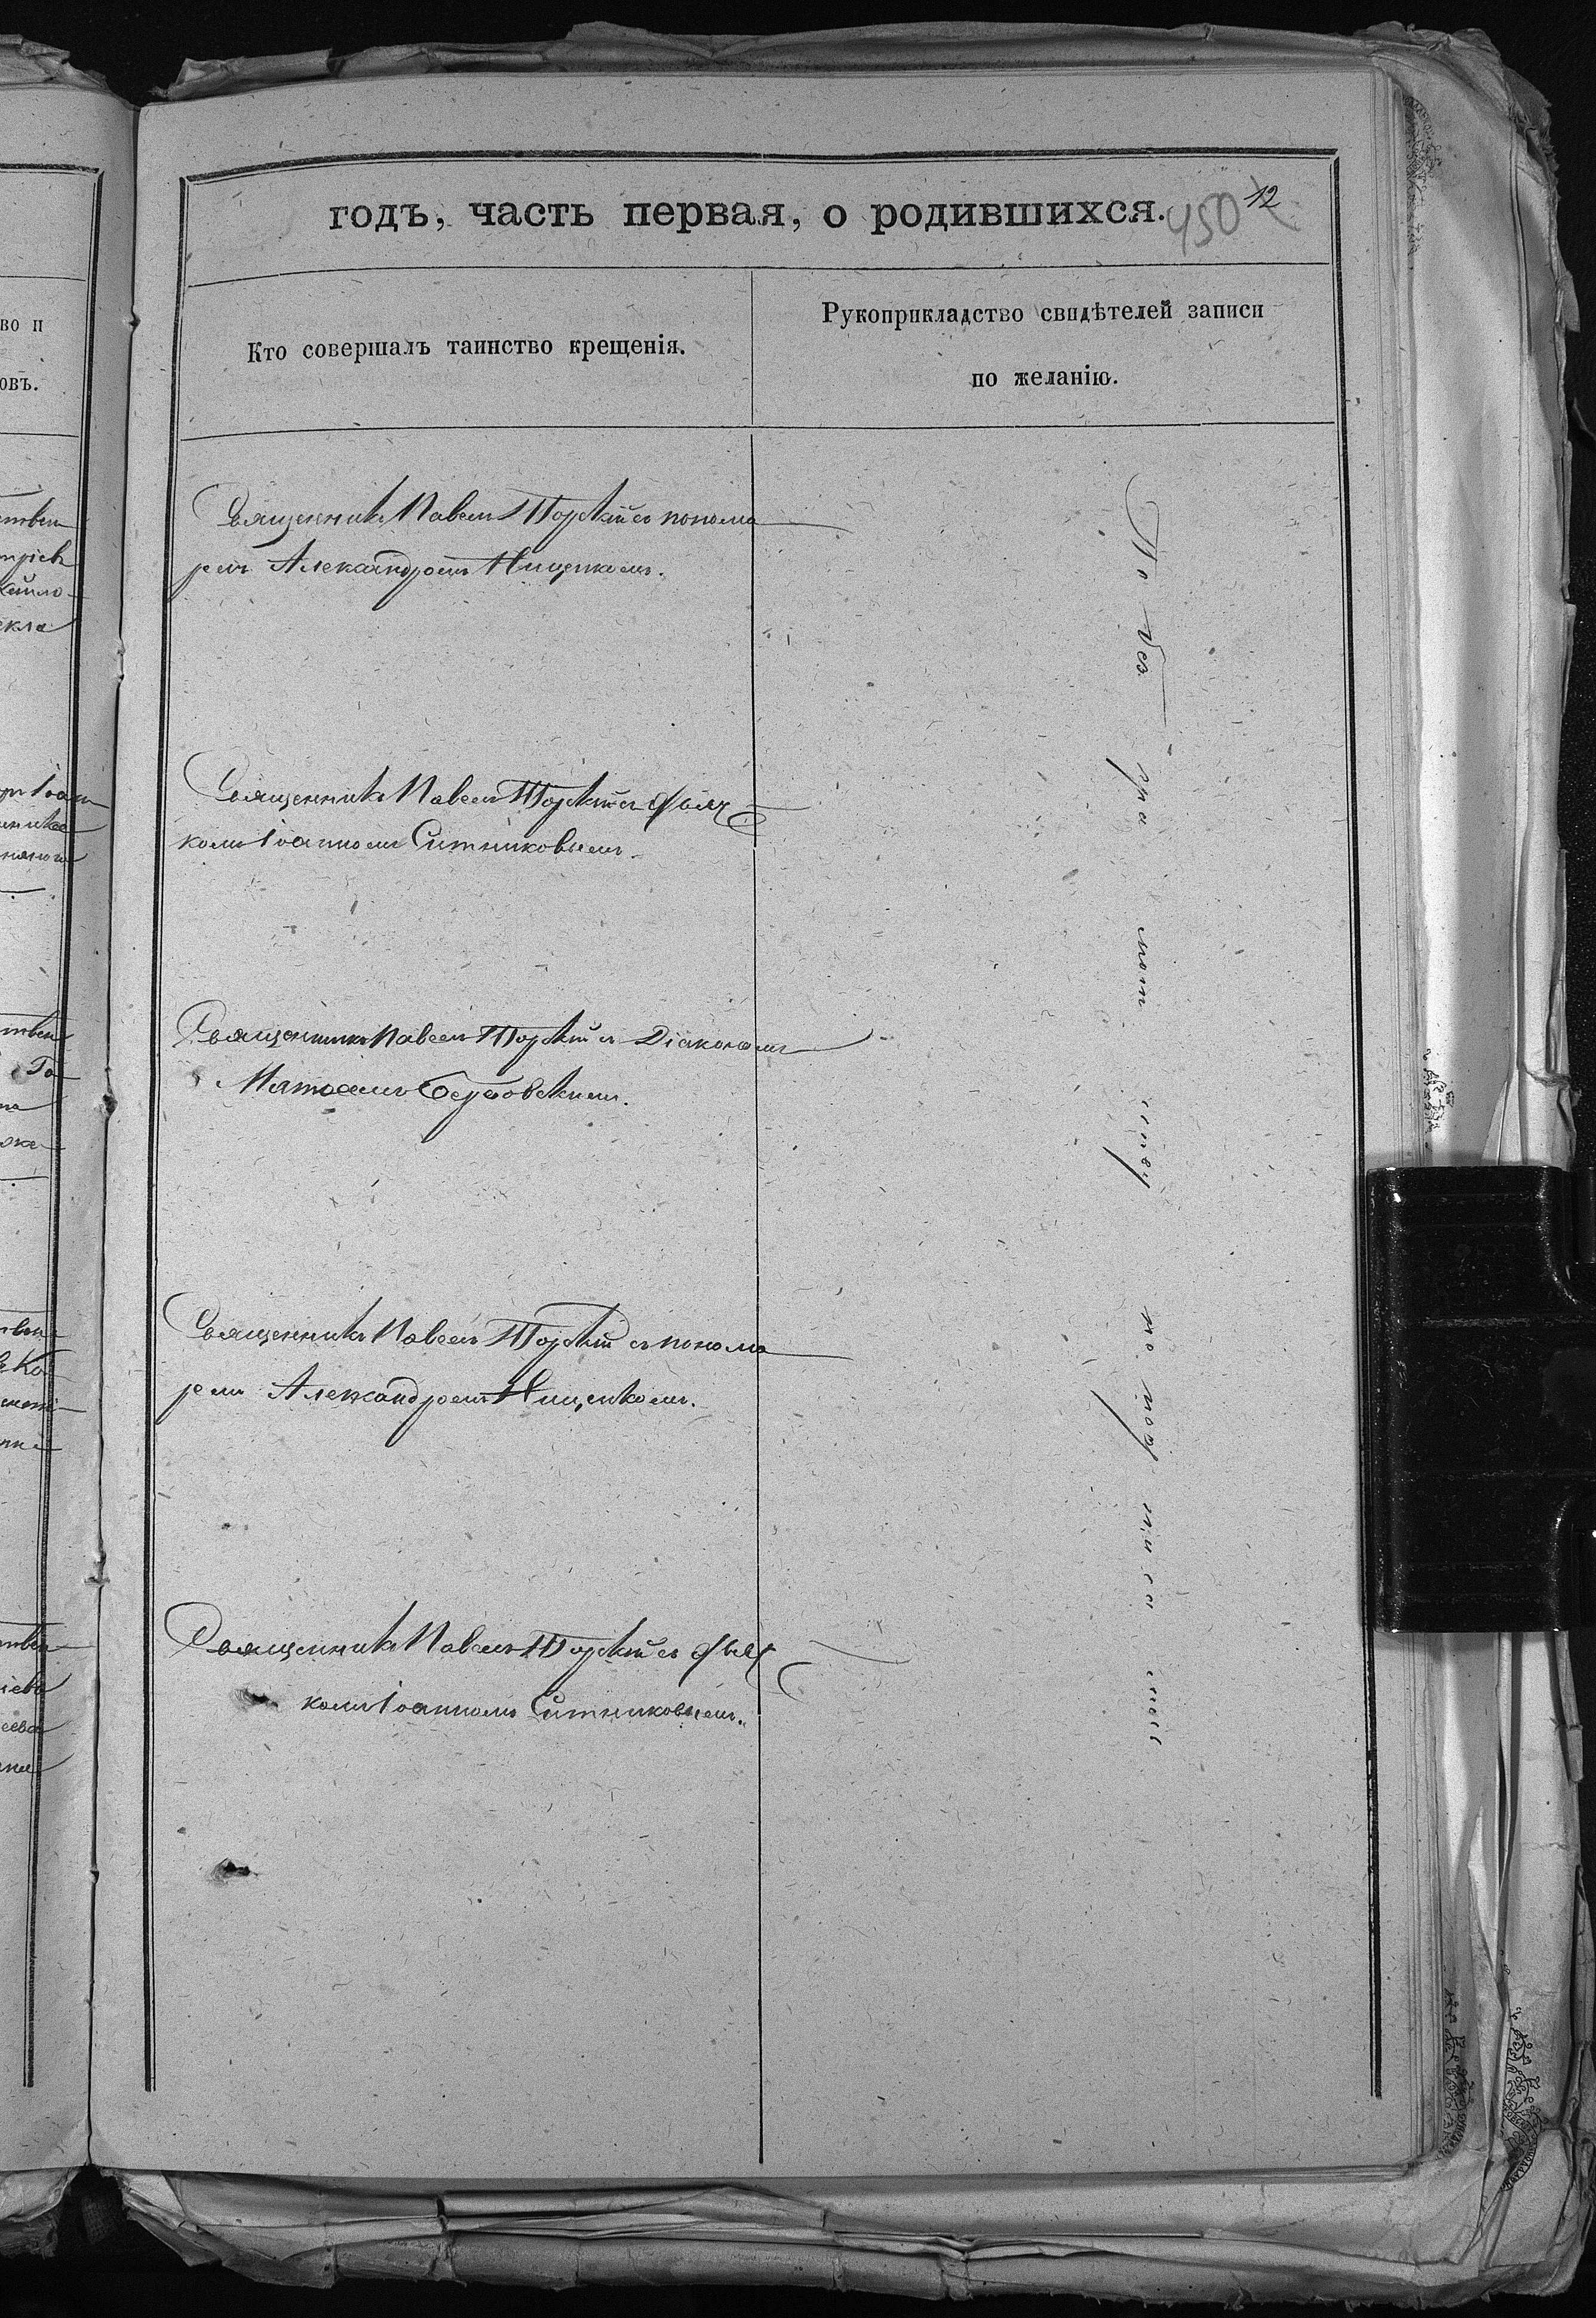 годъ, часть первая, о родившихся.
450 12
Кто совершалъ таинство крещенія.
Рукоприкладство свидѣтелей записи
по желанію.
Священникъ Павелъ Торскій съ понома
ремъ Александромъ Нищенкомъ.
Священникъ Павелъ Торскій съ дьяч
комъ Іоанномъ Ситниковымъ.
Священникъ Павелъ Торскій съ Діакономъ
Священникъ Павелъ Торскій съ понома
ремъ Александромъ Нищенкомъ.
Священникъ Павелъ Торскій съ дьяч
комъ Іоанномъ Ситниковымъ.
По без гра мот ству не под пи са лись